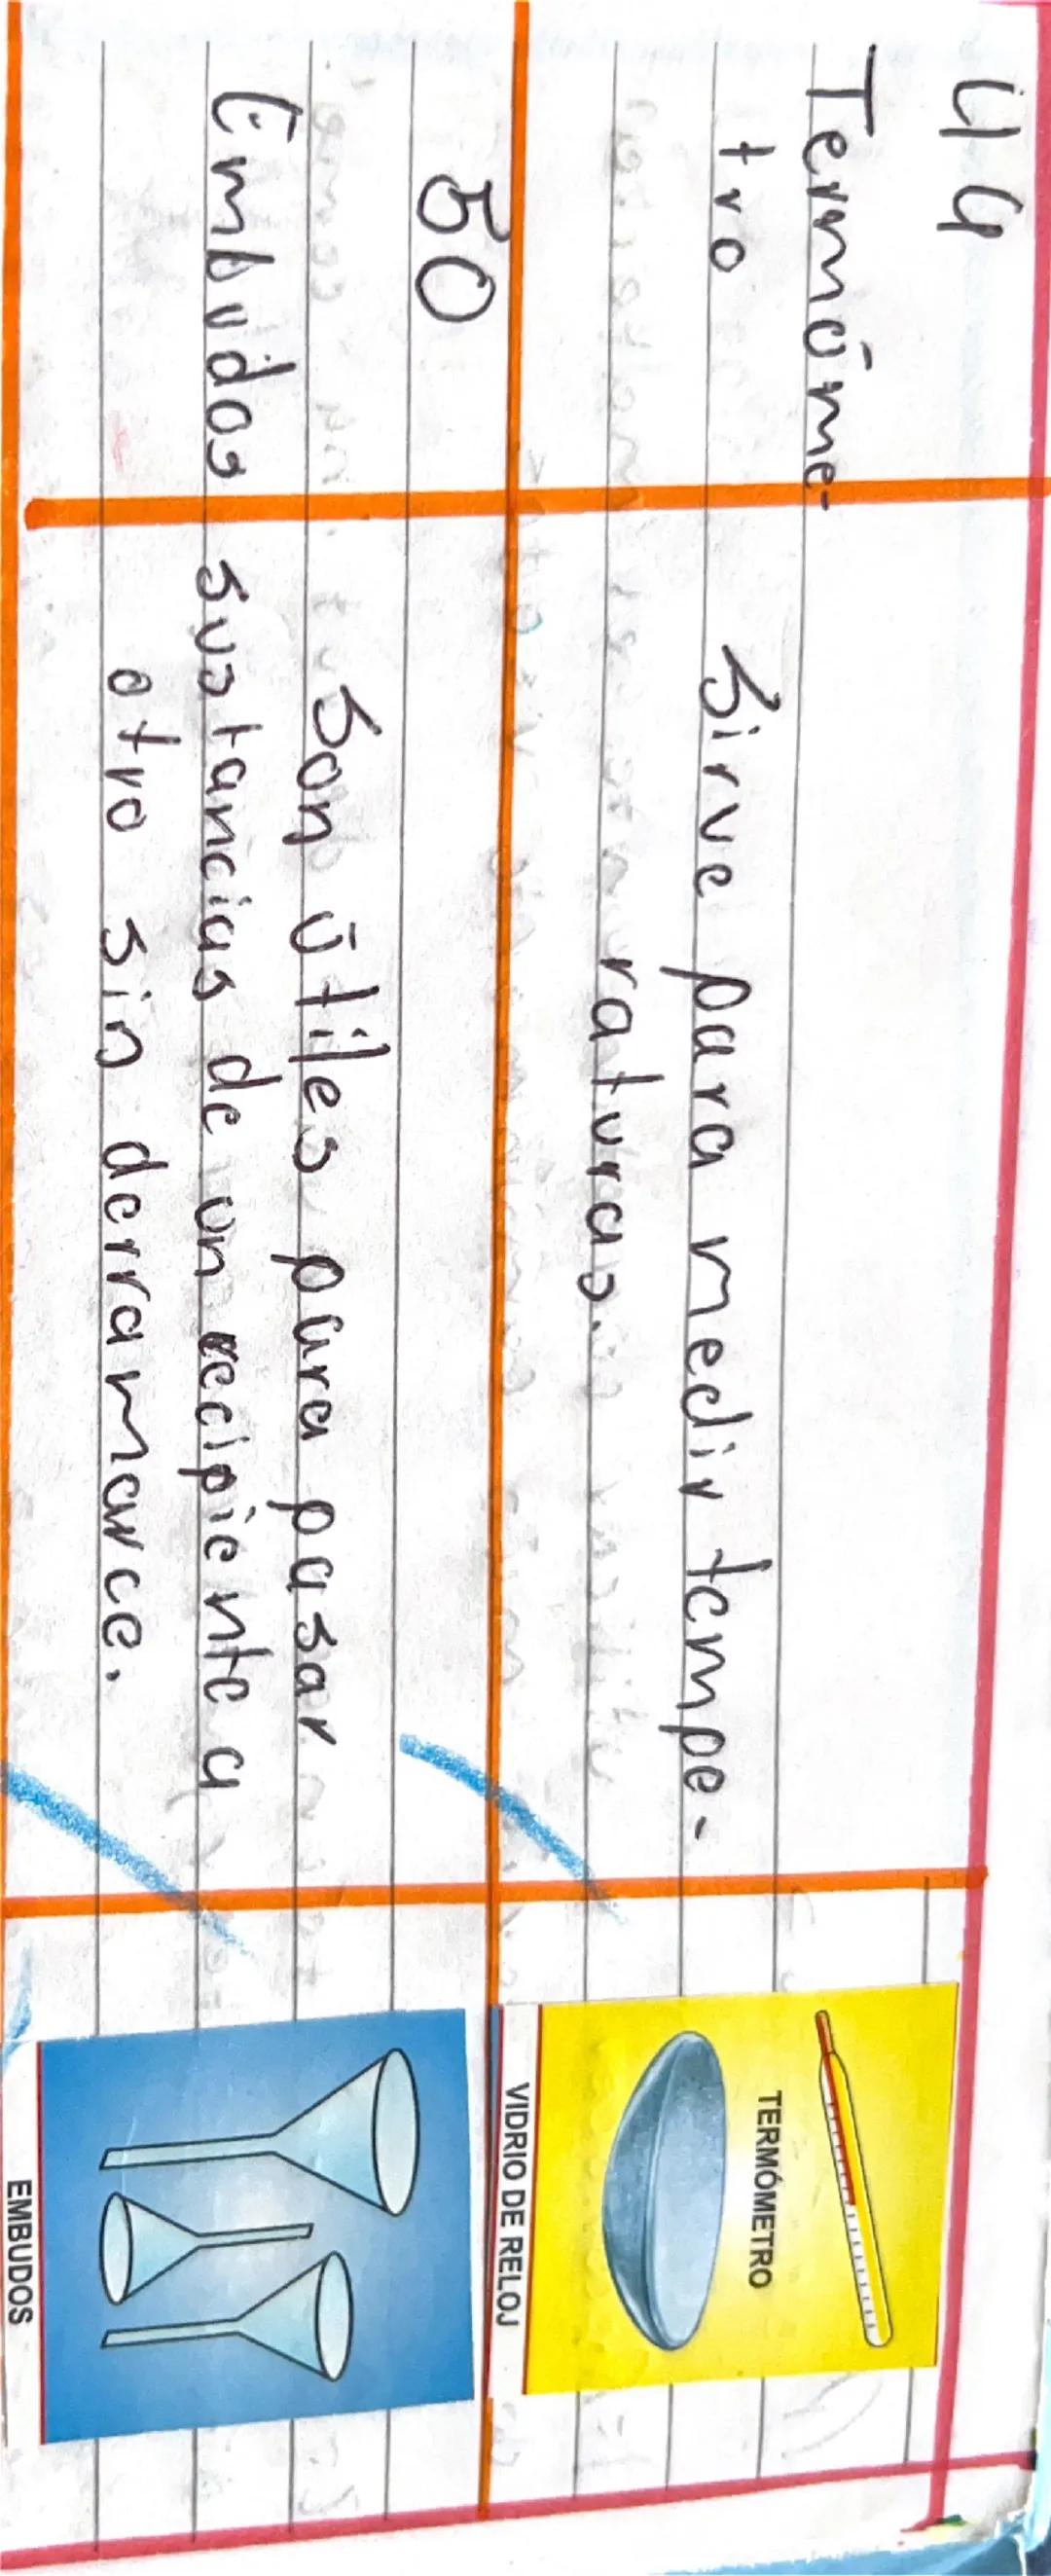 44
Termóme-
tro
Sirve para medir tempe-
raturas.
TERMÓMETRO
VIDRIO DE RELOJ
50
Embudos
Son útiles para pasar
sustancias de un recipiente a
otro sin derramarce.
EMBUDOS